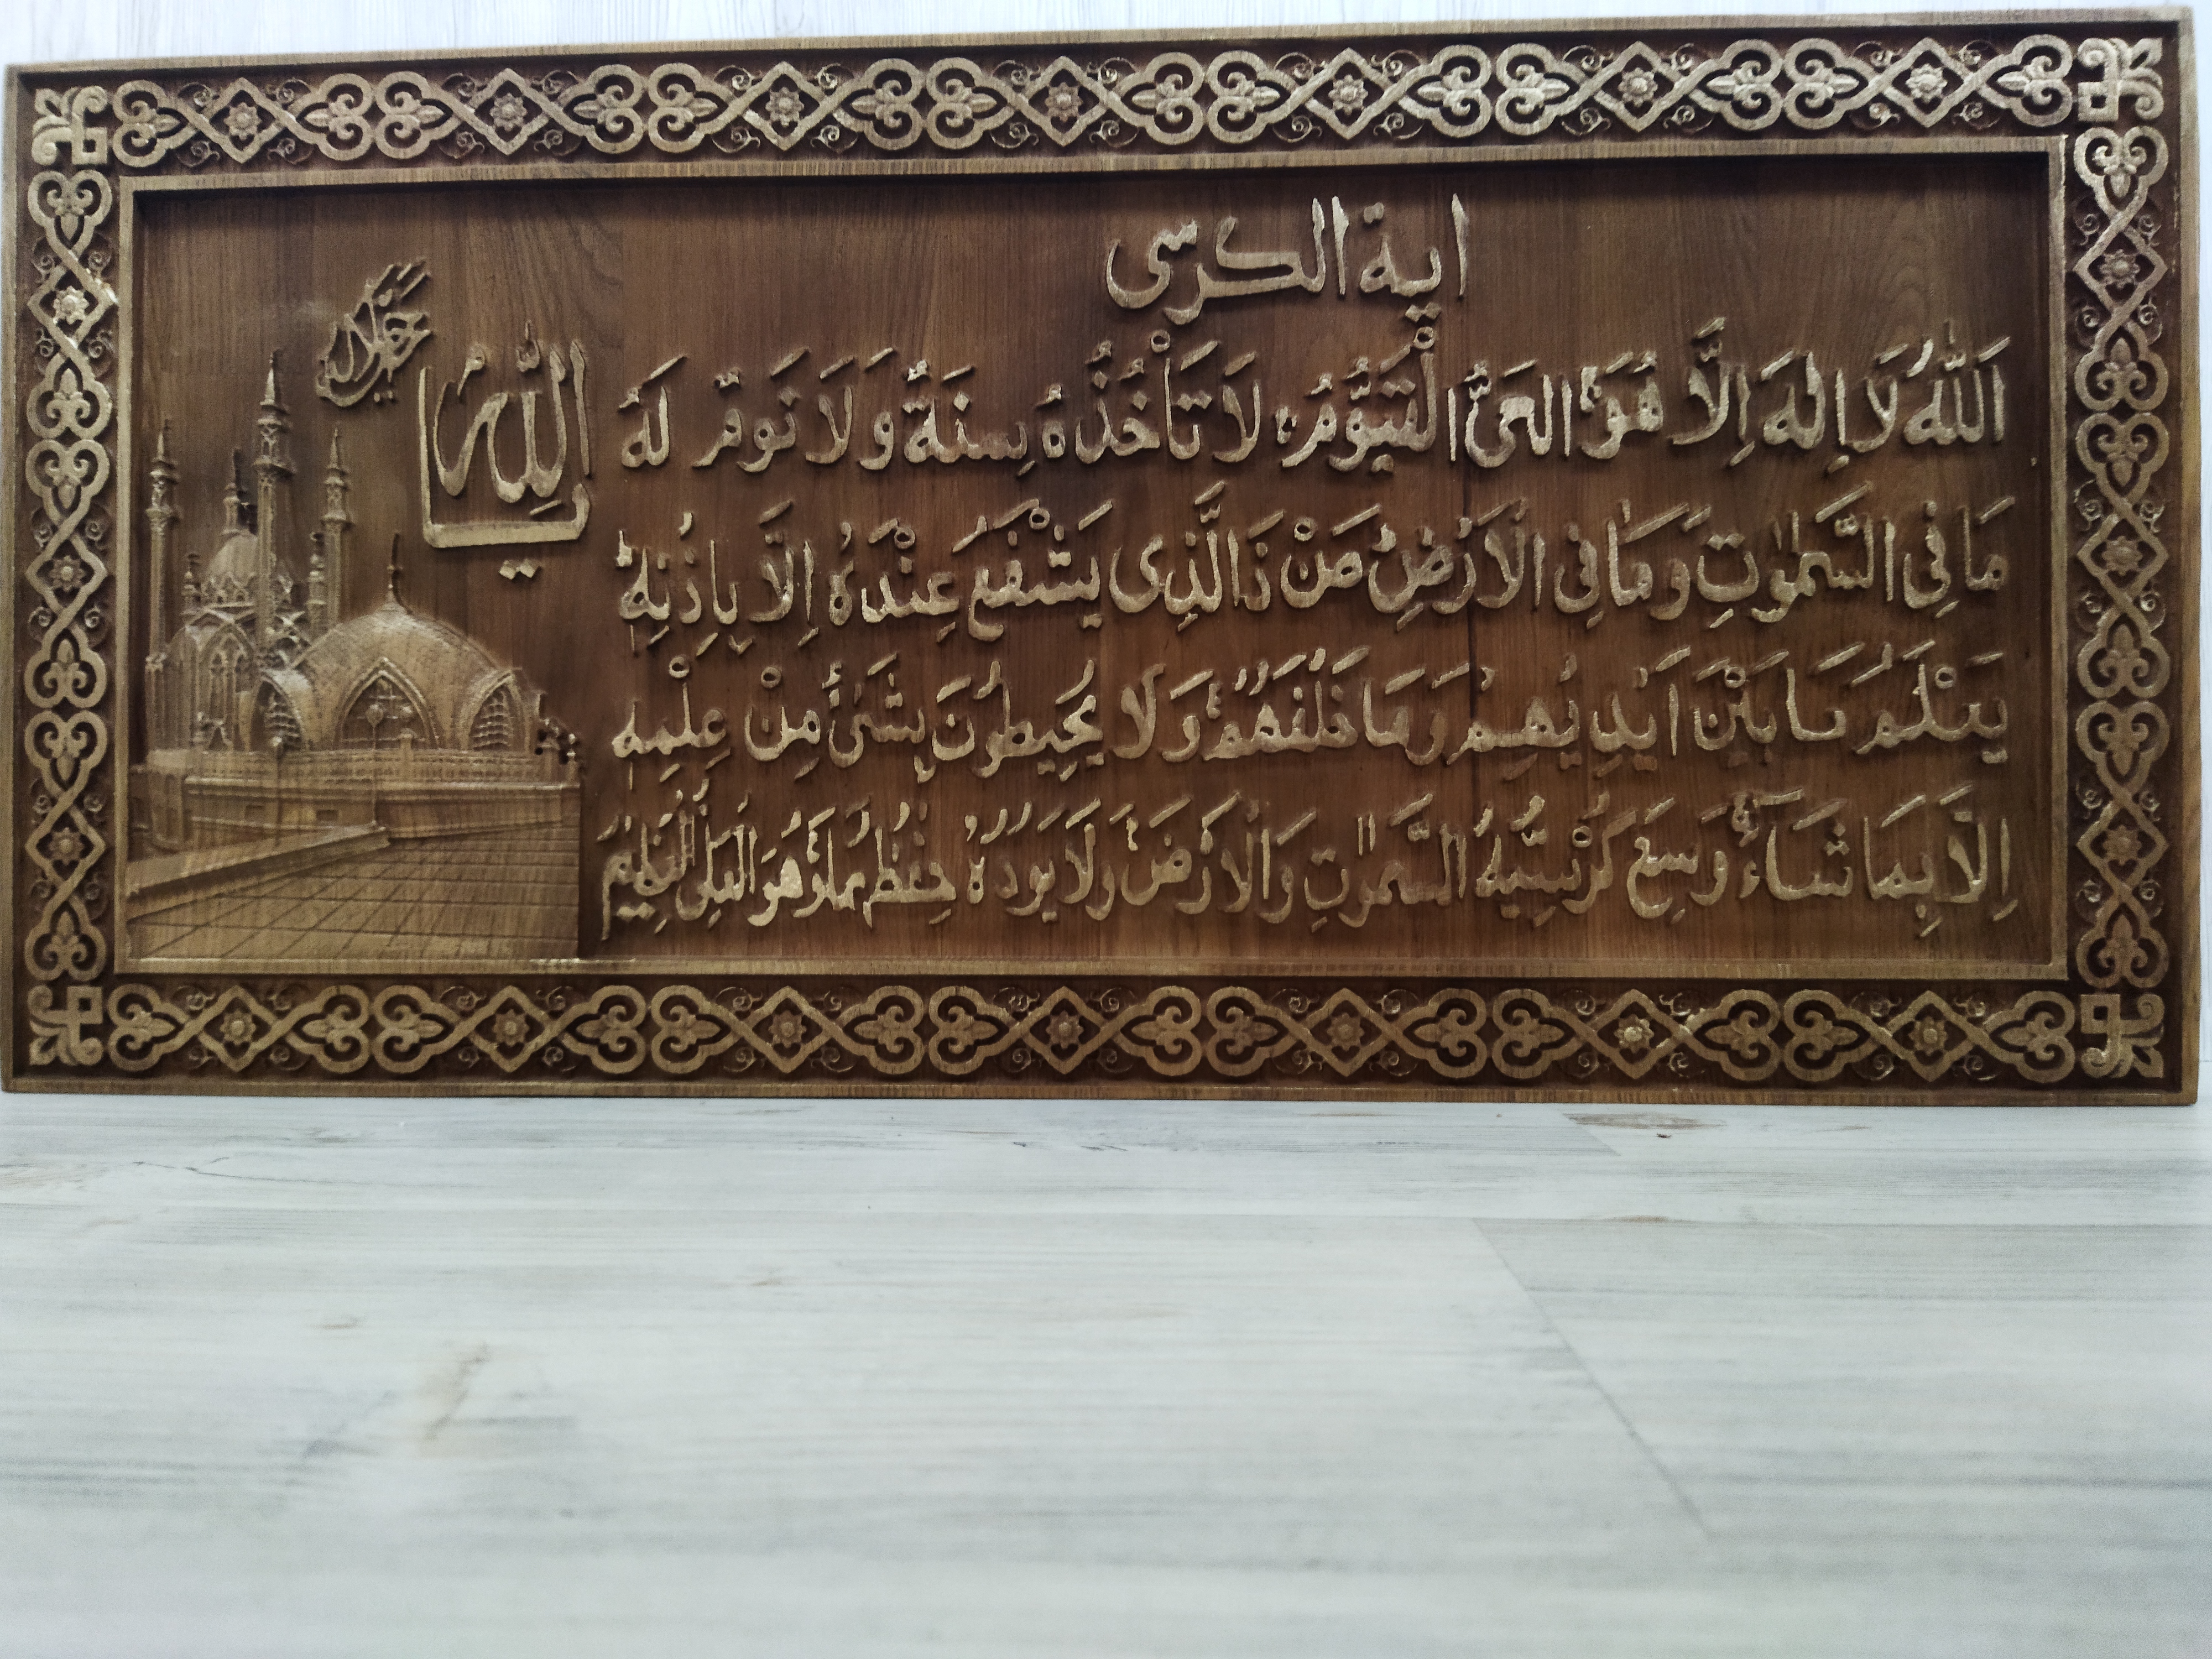 اية الكرسى
جل جلاله
يا الله
اَللّٰهُ لَا اِلٰهَ اِلَّا هُوَ الْحَىُّ الْقَيُّومُ لَا تَأْخُذُهُ سِنَةٌ وَلَا نَوْمٌ لَهُ
مَا فِى السَّمٰوَاتِ وَمَا فِى الْاَرْضِ مَنْ ذَا الَّذِى يَشْفَعُ عِنْدَهُ اِلَّا بِاِذْنِهِ
يَعْلَمُ مَا بَيْنَ اَيْدِيهِمْ وَمَا خَلْفَهُمْ وَلَا يُحِيطُونَ بِشَىْءٍ مِنْ عِلْمِهِ
اِلَّا بِمَا شَاءَ وَسِعَ كُرْسِيُّهُ السَّمٰوَاتِ وَالْاَرْضَ وَلَا يَؤُدُهُ حِفْظُهُمَا وَهُوَ الْعَلِىُّ الْعَظِيمُ